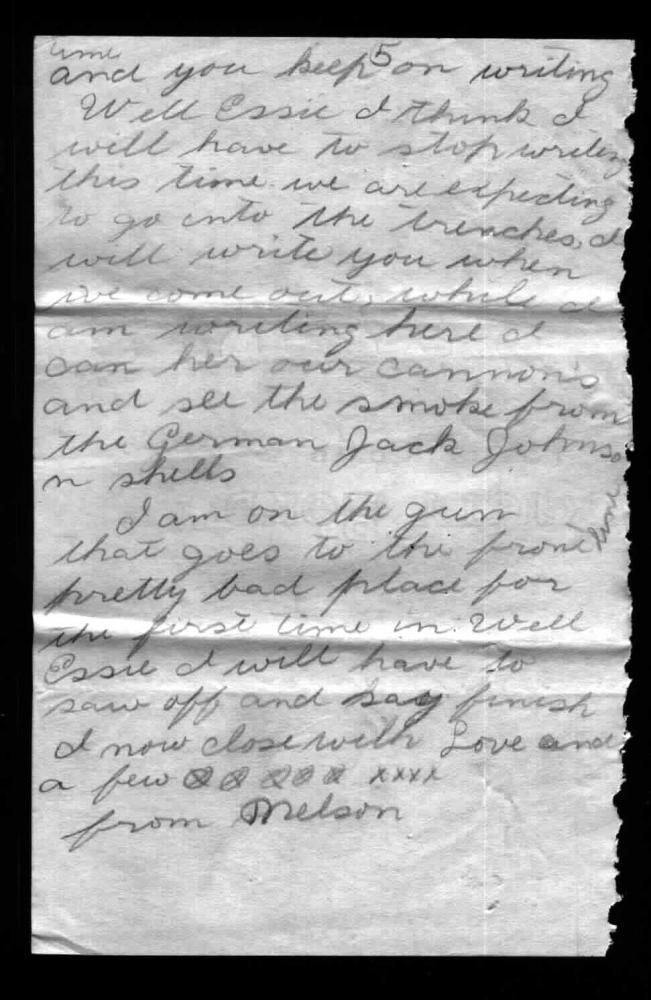 5
time
and you keep on writing
Well Essie I think I
will have to stop writing
this time. we are expecting
to go into the trenches, I
will write you when
we come out, while I
am writing here I
can her our cannons
and see the smoke from
the German Jack Johnso
n shells
I am on the gun
that goes to the front line
pretty bad place for
the first time in. Well
Essie I will have to
saw off and say finish
I now close with Love and
a few ⊗ ⊗ ⊗ ⊗ ⊗ xxxx
from Nelson